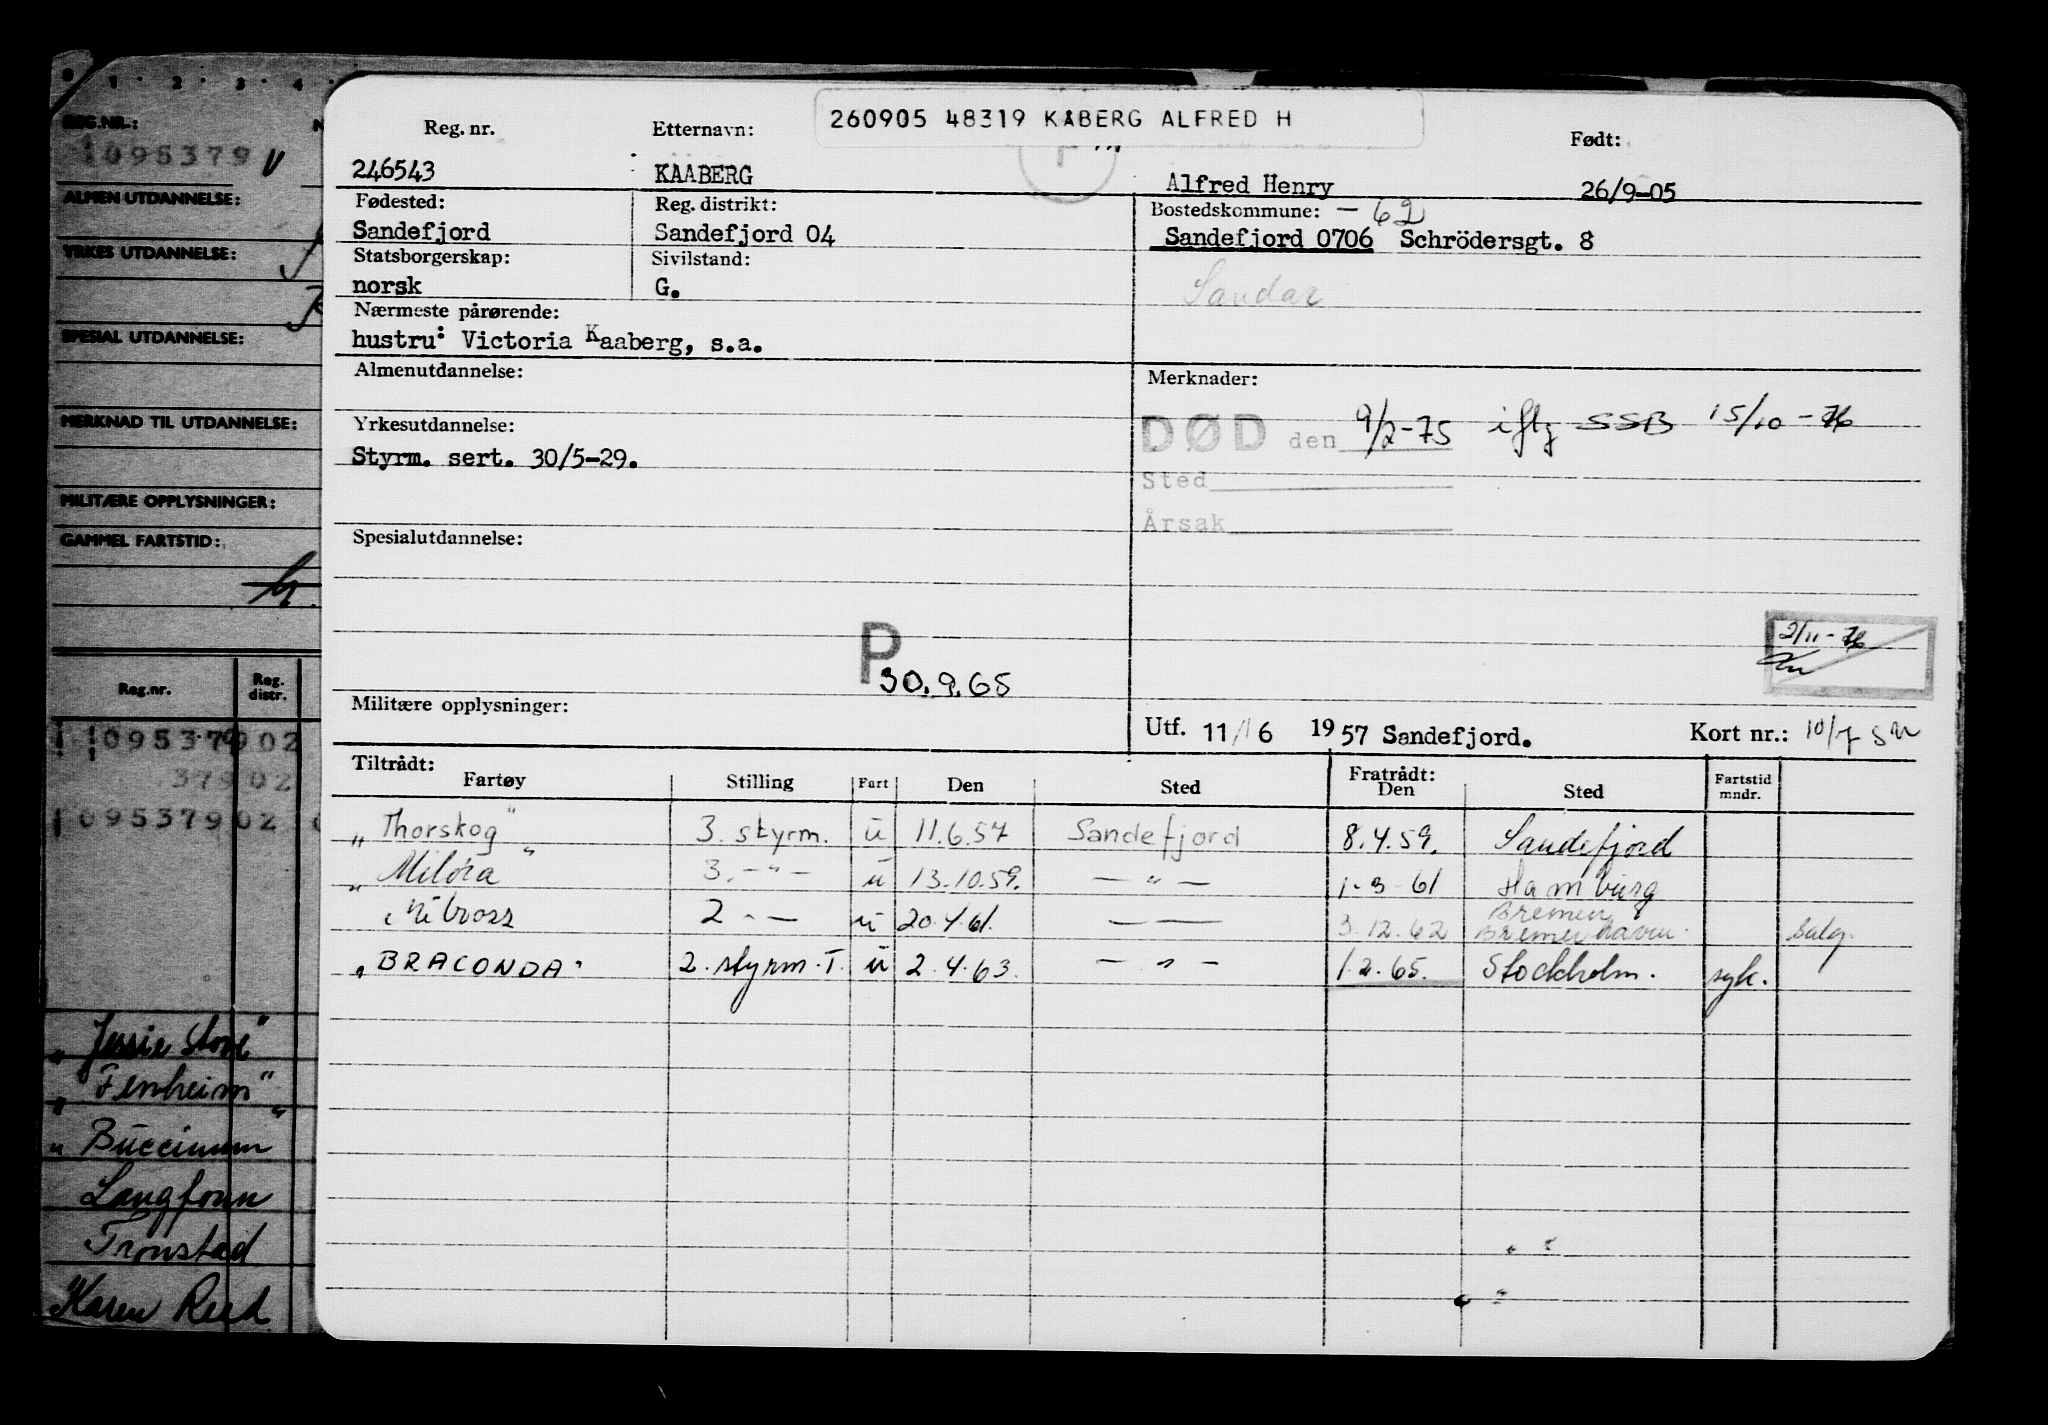 1 2 3 4
REG.NR.:
1095379 V
ALMEN UTDANNELSE:
YRKES UTDANNELSE:
SPESIAL UTDANNELSE:
MERKNAD TIL UTDANNELSE:
MILITÆRE OPPLYSNINGER:
GAMMEL FARTSTID:
Reg.nr. Reg. distr.
1095379 02
379 02
1095379 02
"Jessie Stove"
"Fenheim"
"Buccinum"
Langfonn
Tronstad
Karen Reed
260905 48319 KÅBERG ALFRED H
Reg. nr. Etternavn: Født:
246543 KAABERG Alfred Henry 26/9-05
Fødested: Reg. distrikt: Bostedskommune: - 62
Sandefjord Sandefjord 04 Sandefjord 0706 Schrödersgt. 8
Statsborgerskap: Sivilstand:
norsk G. Sandar
Nærmeste pårørende:
hustru: Victoria Kaaberg, s.a.
Almenutdannelse: Merknader:
Yrkesutdannelse: DØD den 9/2-75 iflg SSB 15/10-76
Styrm. sert. 30/5-29.
Sted
Årsak
Spesialutdannelse:
2/11-76
P
30.9.65
Militære opplysninger:
Utf. 11/6 1957 Sandefjord. Kort nr.:
Tiltrådt: Fratrådt:
Fartøy Stilling Fart Den Sted Den Sted Fartstid mndr.
"Thorskog" 3. styrm. u 11.6.57 Sandefjord 8.4.59. Sandefjord
"Milóra" 3. -"- u 13.10.59. -"- 1-3-61 Hamburg
2 - - u 20.4.61. - - 3.12.62 Bremen Bremerhaven. Salg.
"BRACONDA" 2. styrm. T. u 2.4.63. -"- 1.2.65. Stockholm. syk.